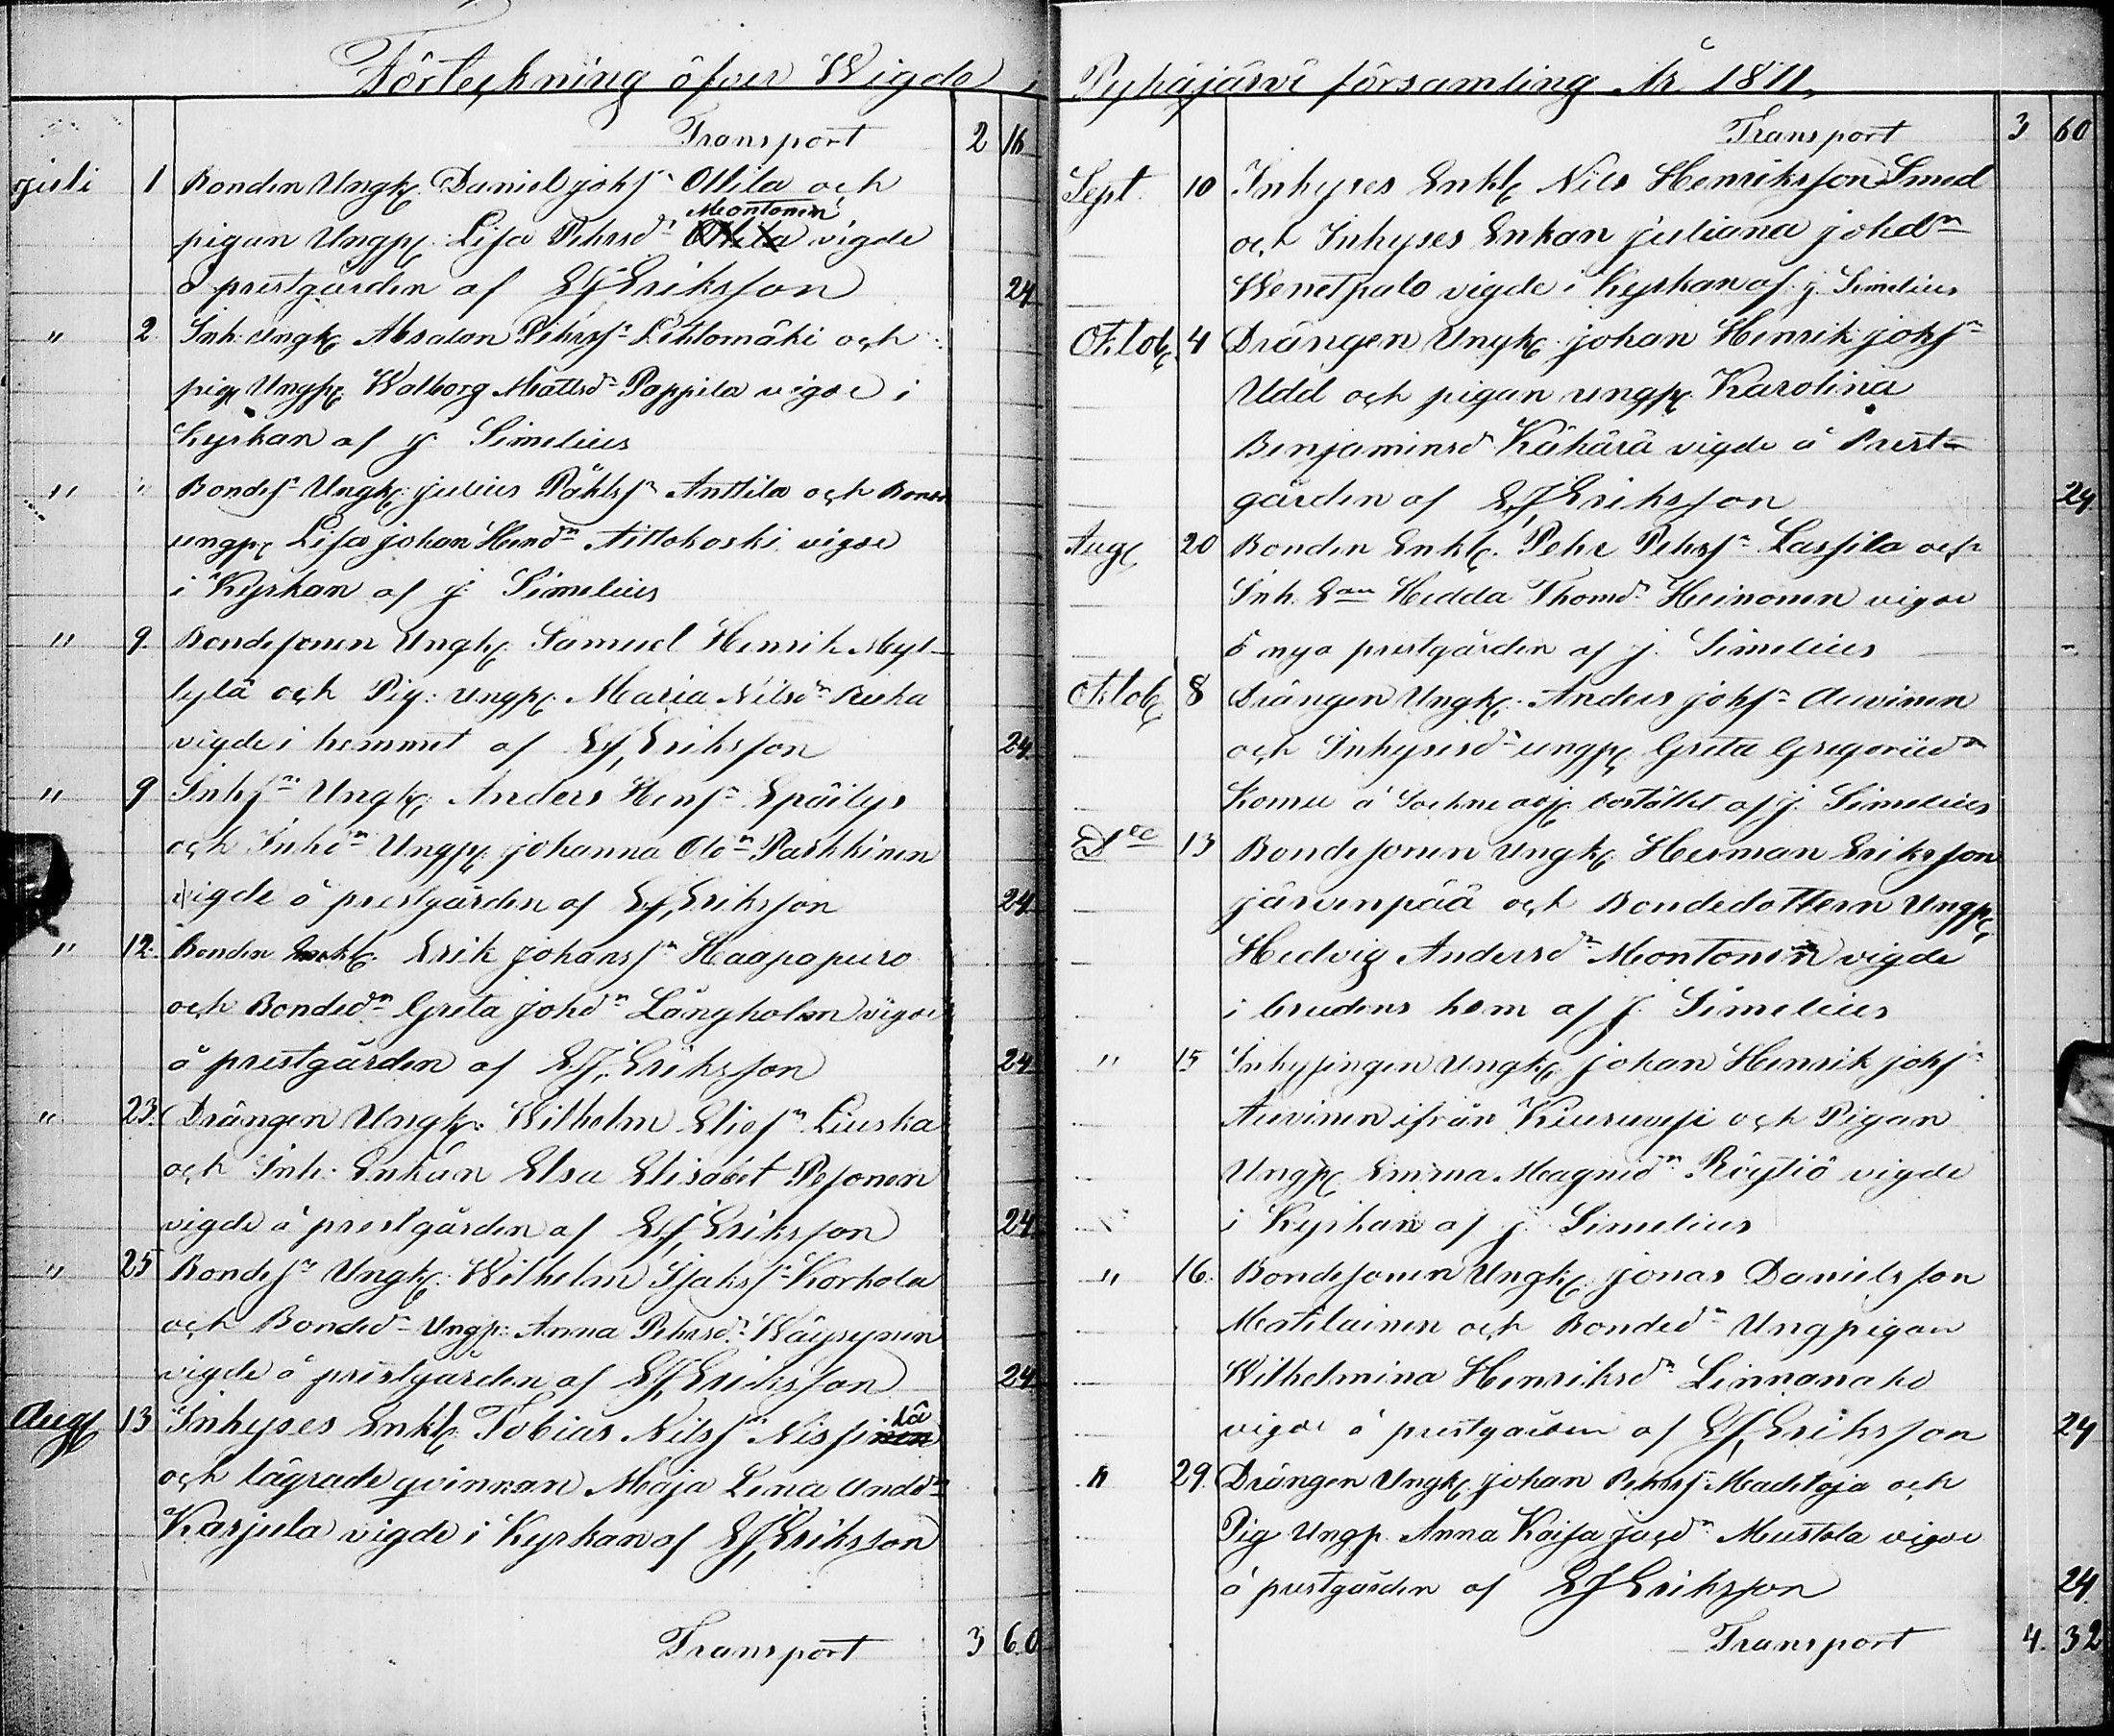 Förteckning öfver Wigde i
Transport 2 16
juli 1 Bonden Ungk. Daniel johsn Ollila och
Montonen
pigan Ungp. Lisa Pehrsdr Ollila vigde
å prestgården af EJEriksson 24
" 2. Inh. Ungk. Absalon Pehrsn Lehtomäki och
pig. Ungp. Walborg Mattsdr Pappila vigde i
Kyrkan af J. Simelius
" " Bondesn Ungk. julius Påhlsn Anttila och
ungp. Lisa johan Hendn Aittokoski vigde
i Kyrkan af J. Simelius
" 9. Bondesonen Ungk. Samuel Henrik Myl-
lylä och Pig. ungp. Maria Nilsdn
vigde i hemmet af EJ, Eriksson 24.
" 9 Inhsn Ungk. Anders Hensn Epäilys
och Inhdn Ungp. johanna Oldn Parkkinen
vigde å prestgården af EJ, Eriksson 24
" 12. Bonden Enkl. Erik johanssn Haapapuro
och Bondedn Greta johdn Långholm vigde
å prestgården af EJ, Eriksson 24
" 23. Drängen Ungk. Wilhelm Eliesn Liuska
och Inh. Enkan Elsa Elisabet Pesonen
vigde å prestgården af EJ, Eriksson 24
" 25 Bondesn Ungk. Wilhelm Isakssn Korhola
och Bondedn Ungp. Anna Pehrsdn Wäyrynen
vigde å prestgården af EJ, Eriksson 24
Aug. 13 Inhyses Enkl. Tobias Nilssn Nissinen lä
och lägrade qvinnan Maja Lena Anddn
Karjula vigde i Kyrkan af EJ, Eriksson
Transport 3 60
Pyhäjärvi församling År 1871,
Transport 3 60
Sept. 10 Inhyses Enkl. Nils Henriksson Smed
och Inhyses Enkan juliana johdn
Wenetpalo vigde i Kyrkan af J. Simelius
Oktob. 4 Drängen Ungk. johan Henrik johsn
Udd och pigan ungp. Karolina
Benjaminsd Kähärä vigde å Prest-
gården af EJEriksson 24
Aug. 20 Bonden Enkl. Pehr Pehrsn Lassila och
Inh. Ean Hedda Thomdr Heinonen vigde
å nya prestgården af J. Simelius -
Oktob. 8 Drängen Ungk. Anders johsn Auvinen
och Inhysesdr ungp. Greta Gregoriidn
Komu å bostället af J. Simelius
Dec 13 Bondesonen Ungk. Herman Eriksson
järvenpää och Bondedottern Ungp.
Hedvig Andersdn Montonen vigde
i brudens hem af J. Simelius
" 15 Inhysingen Ungk. johan Henrik johsn
Auvinen ifrån Kiuruvesi och Pigan
Ungp. Emma Magnidn Röytiö vigde
i Kyrkan af J. Simelius
" 16. Bondesonen Ungk. jonas Danielsson
Matilainen och Bondedn Ungpigan
Wilhelmina Henriksdn Linnanaho
vigde å prestgården af EJ, Eriksson 24
" 29. Drängen Ungk. johan Pehrsn Madetoja och
Pig Ungp. Anna Kaisa jacdn Mustola vigde
å prestgården af EJEriksson 24
Transport 4. 32